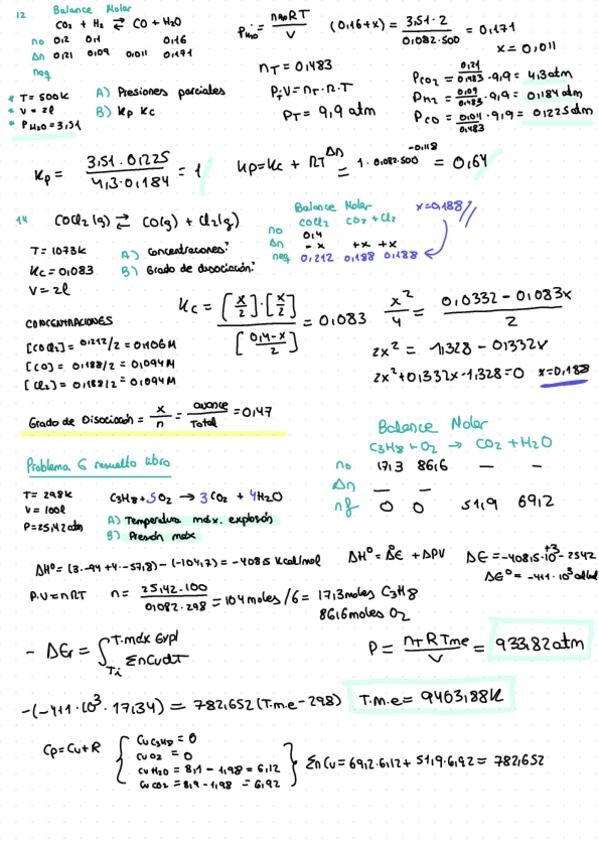 12 Balance Molar
CO₂ + H₂ ⇄ CO + H₂O
no 0,2 0,1 0,16
Δn 0,21 0,09 0,011 0,171
neq
T = 500k
V = 2l
P H₂O = 3,51
A) Presiones parciales
B) Kp Kc
P H₂O = nRT / V (0,16+x) = 3,51·2 / 0,082·500 = 0,171
x = 0,011
nT = 0,483
PtV = nT·R·T
PT = 9,9 atm
PCO₂ = 0,21/0,483 · 9,9 = 4,3 atm
PH₂ = 0,09/0,483 · 9,9 = 0,184 atm
PCO = 0,011/0,483 · 9,9 = 0,225 atm
Kp = 3,51·0,225 / 4,3·0,184 = 1
Kp = Kc + RT^Δn = 1·0,082·500^-0,118 = 0,64
14 COCl₂(g) ⇄ CO(g) + Cl₂(g)
T = 1073k
Kc = 0,083
V = 2l
A) Concentraciones?
B) Grado de disociación?
Balance Molar
COCl₂ CO₂ + Cl₂
no 0,4
Δn -x +x +x
neq 0,212 0,188 0,188
x=0,188//
CONCENTRACIONES
[COCl₂] = 0,212/2 = 0,106M
[CO] = 0,188/2 = 0,094M
[Cl₂] = 0,188/2 = 0,094M
Kc = [x/2]·[x/2] / [0,4-x/2] = 0,083
x²/4 = 0,0332 - 0,083x / 2
2x² = 1,328 - 0,332x
2x² + 0,332x - 1,328 = 0 x=0,188
Grado de Disociación = x/n = avance/Total = 0,47
Problema 6 resuelto libro
T = 298k
V = 100l
P = 25,42 atm
C₃H₈ + 5O₂ → 3CO₂ + 4H₂O
A) Temperatura máx. explosión
B) Presión máx
Balance Molar
C₃H₈ + O₂ → CO₂ + H₂O
no 17,3 86,6 — —
Δn — —
nf 0 0 51,9 69,2
ΔHº = (3·-94+4·-57,8) - (-104,7) = -408,5 kcal/mol
ΔHº = ΔE + ΔPV
ΔE = -408,5·10⁺³ - 2542
ΔEº = -411·10³ cal/mol
P·V = nRT n = 25,42·100 / 0,082·298 = 104 moles /6 = 17,3 moles C₃H₈
86,6 moles O₂
- ΔEr = ∫ Ti T.máx Expl ΣnCvdT
P = nT R Tme / V = 933,82 atm
-(-411·10³·17,34) = 782,652 (T.m.e - 298) T.m.e = 9403,88k
Cp = Cv + R
Cv C₃H₈ = 0
Cv O₂ = 0
Cv H₂O = 8,1 - 1,98 = 6,12
Cv CO₂ = 8,9 - 1,98 = 6,92
ΣnCv = 69,2·6,12 + 51,9·6,92 = 782,652